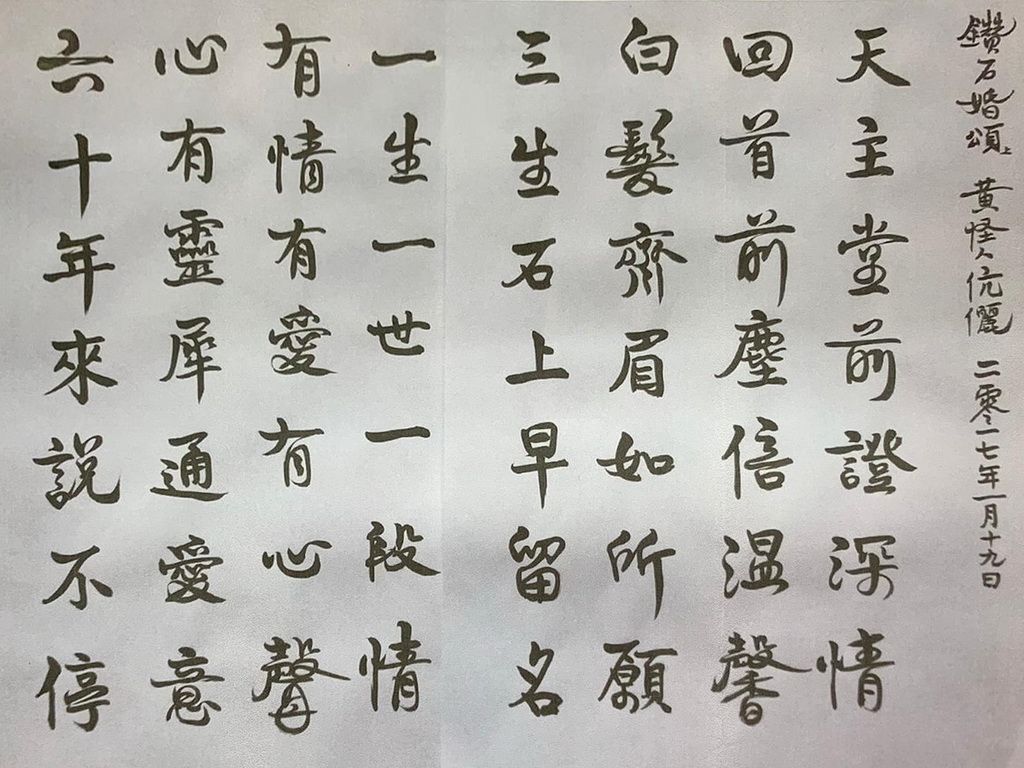 鑽石婚頌上 黄怪人伉儷 二零一七年一月十九日
天主堂前證深情
回首前塵倍温馨
白髮齊眉如所願
三生石上早留名
一生一世一段情
有情有愛有心聲
心有靈犀通愛意
六十年來説不停